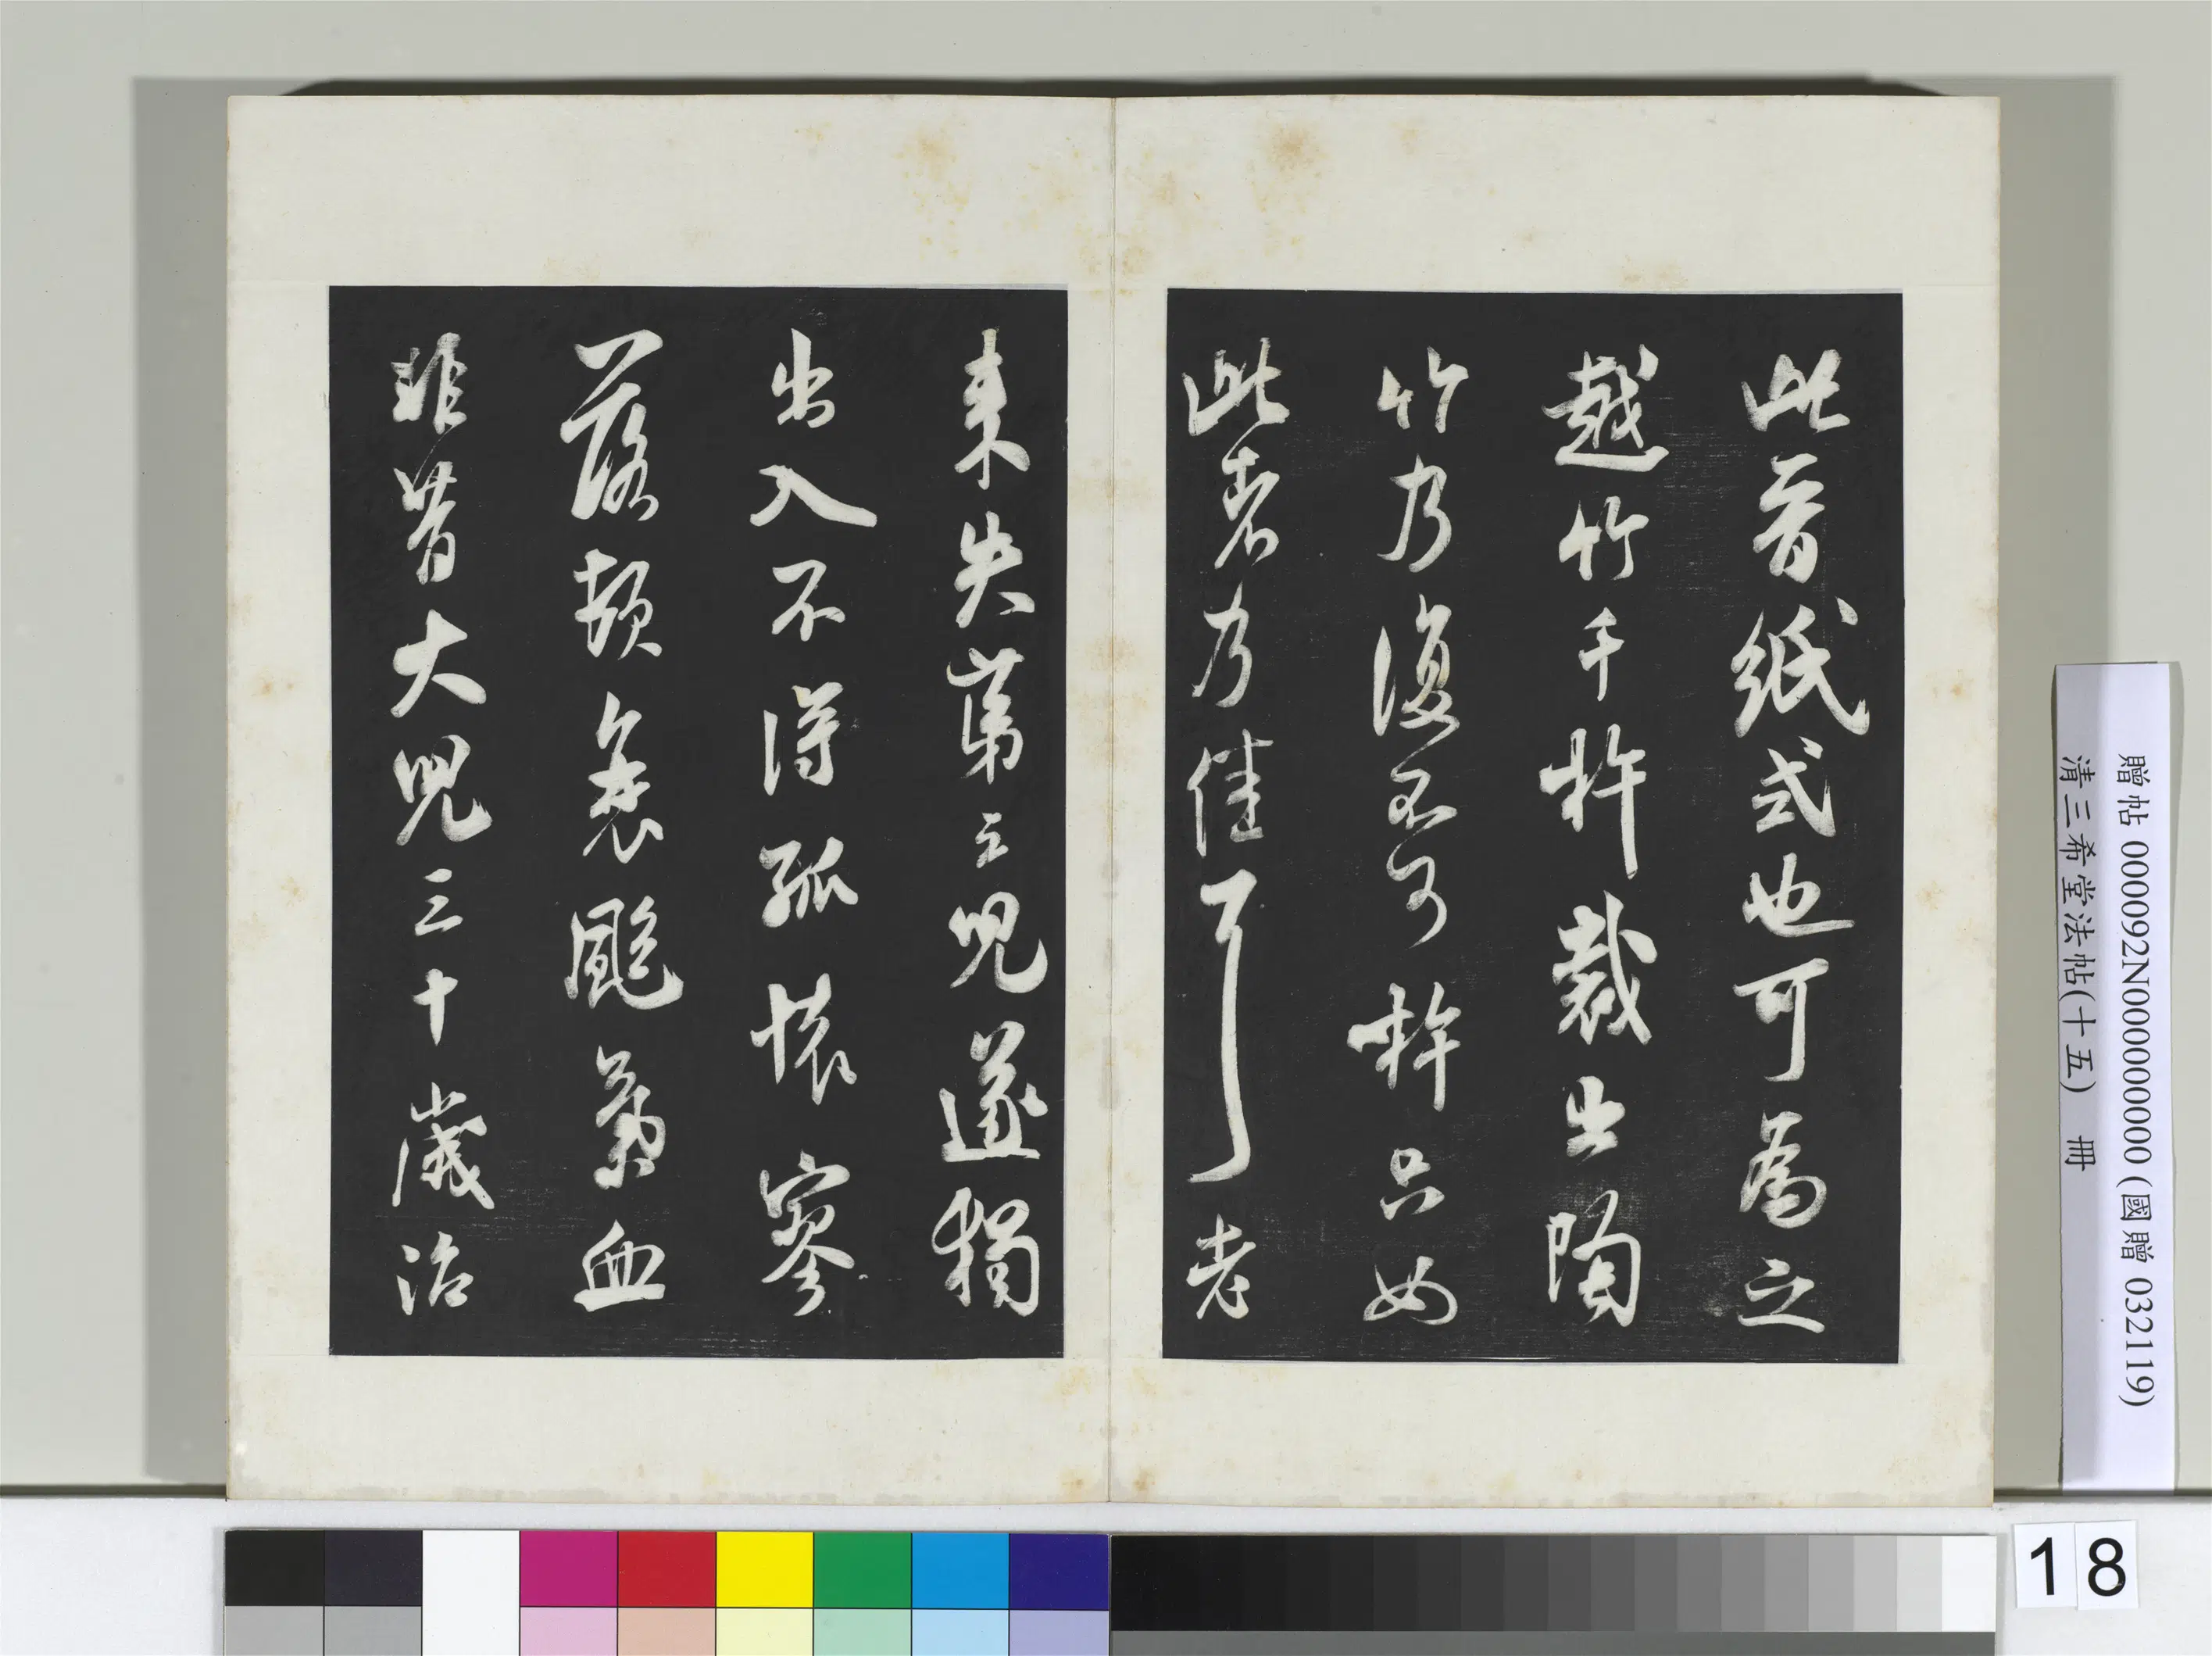 此晉紙式也可為之
越竹千杵裁出陶
竹乃復不可杵只如
此者乃佳耳老
来失第三兒遂獨
出入不得孤懷寥
落頓衰颽氣血
非昔大兒三十歲治
贈帖 000092N000000000 (國贈 032119)
清三希堂法帖(十五) 冊
18